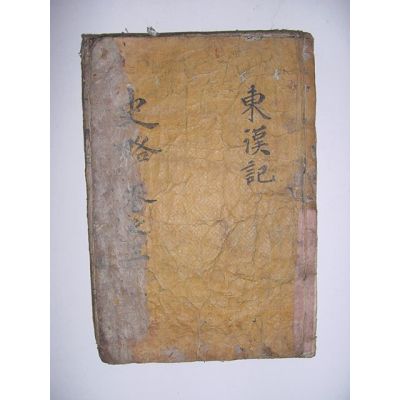 東漢記
史略 卷之三